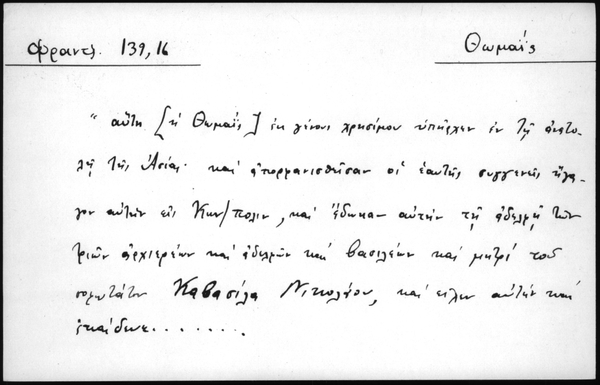 Φραντζ. 139,16
Θωμαΐς
"αὕτη [ἡ Θωμαΐς] ἐκ γένους χρησίμου ὑπῆρχεν ἐν τῇ ἀνατο-
λῇ τῆς Ἀσίας· καὶ ἀπορφανισθεῖσαν οἱ ἑαυτῆς συγγενεῖς ἤγα-
γον αὐτὴν εἰς Κων/πολιν, καὶ ἔδωκαν αὐτὴν τῇ ἀδελφῇ τῶν
τριῶν ἀρχιερέων καὶ ἀδελφῶν καὶ βασιλέων καὶ μητρὶ τοῦ
σοφωτάτου Καβάσιλα Νικολάου, καὶ εἶχεν αὐτὴν καὶ
ἐπαίδευε........